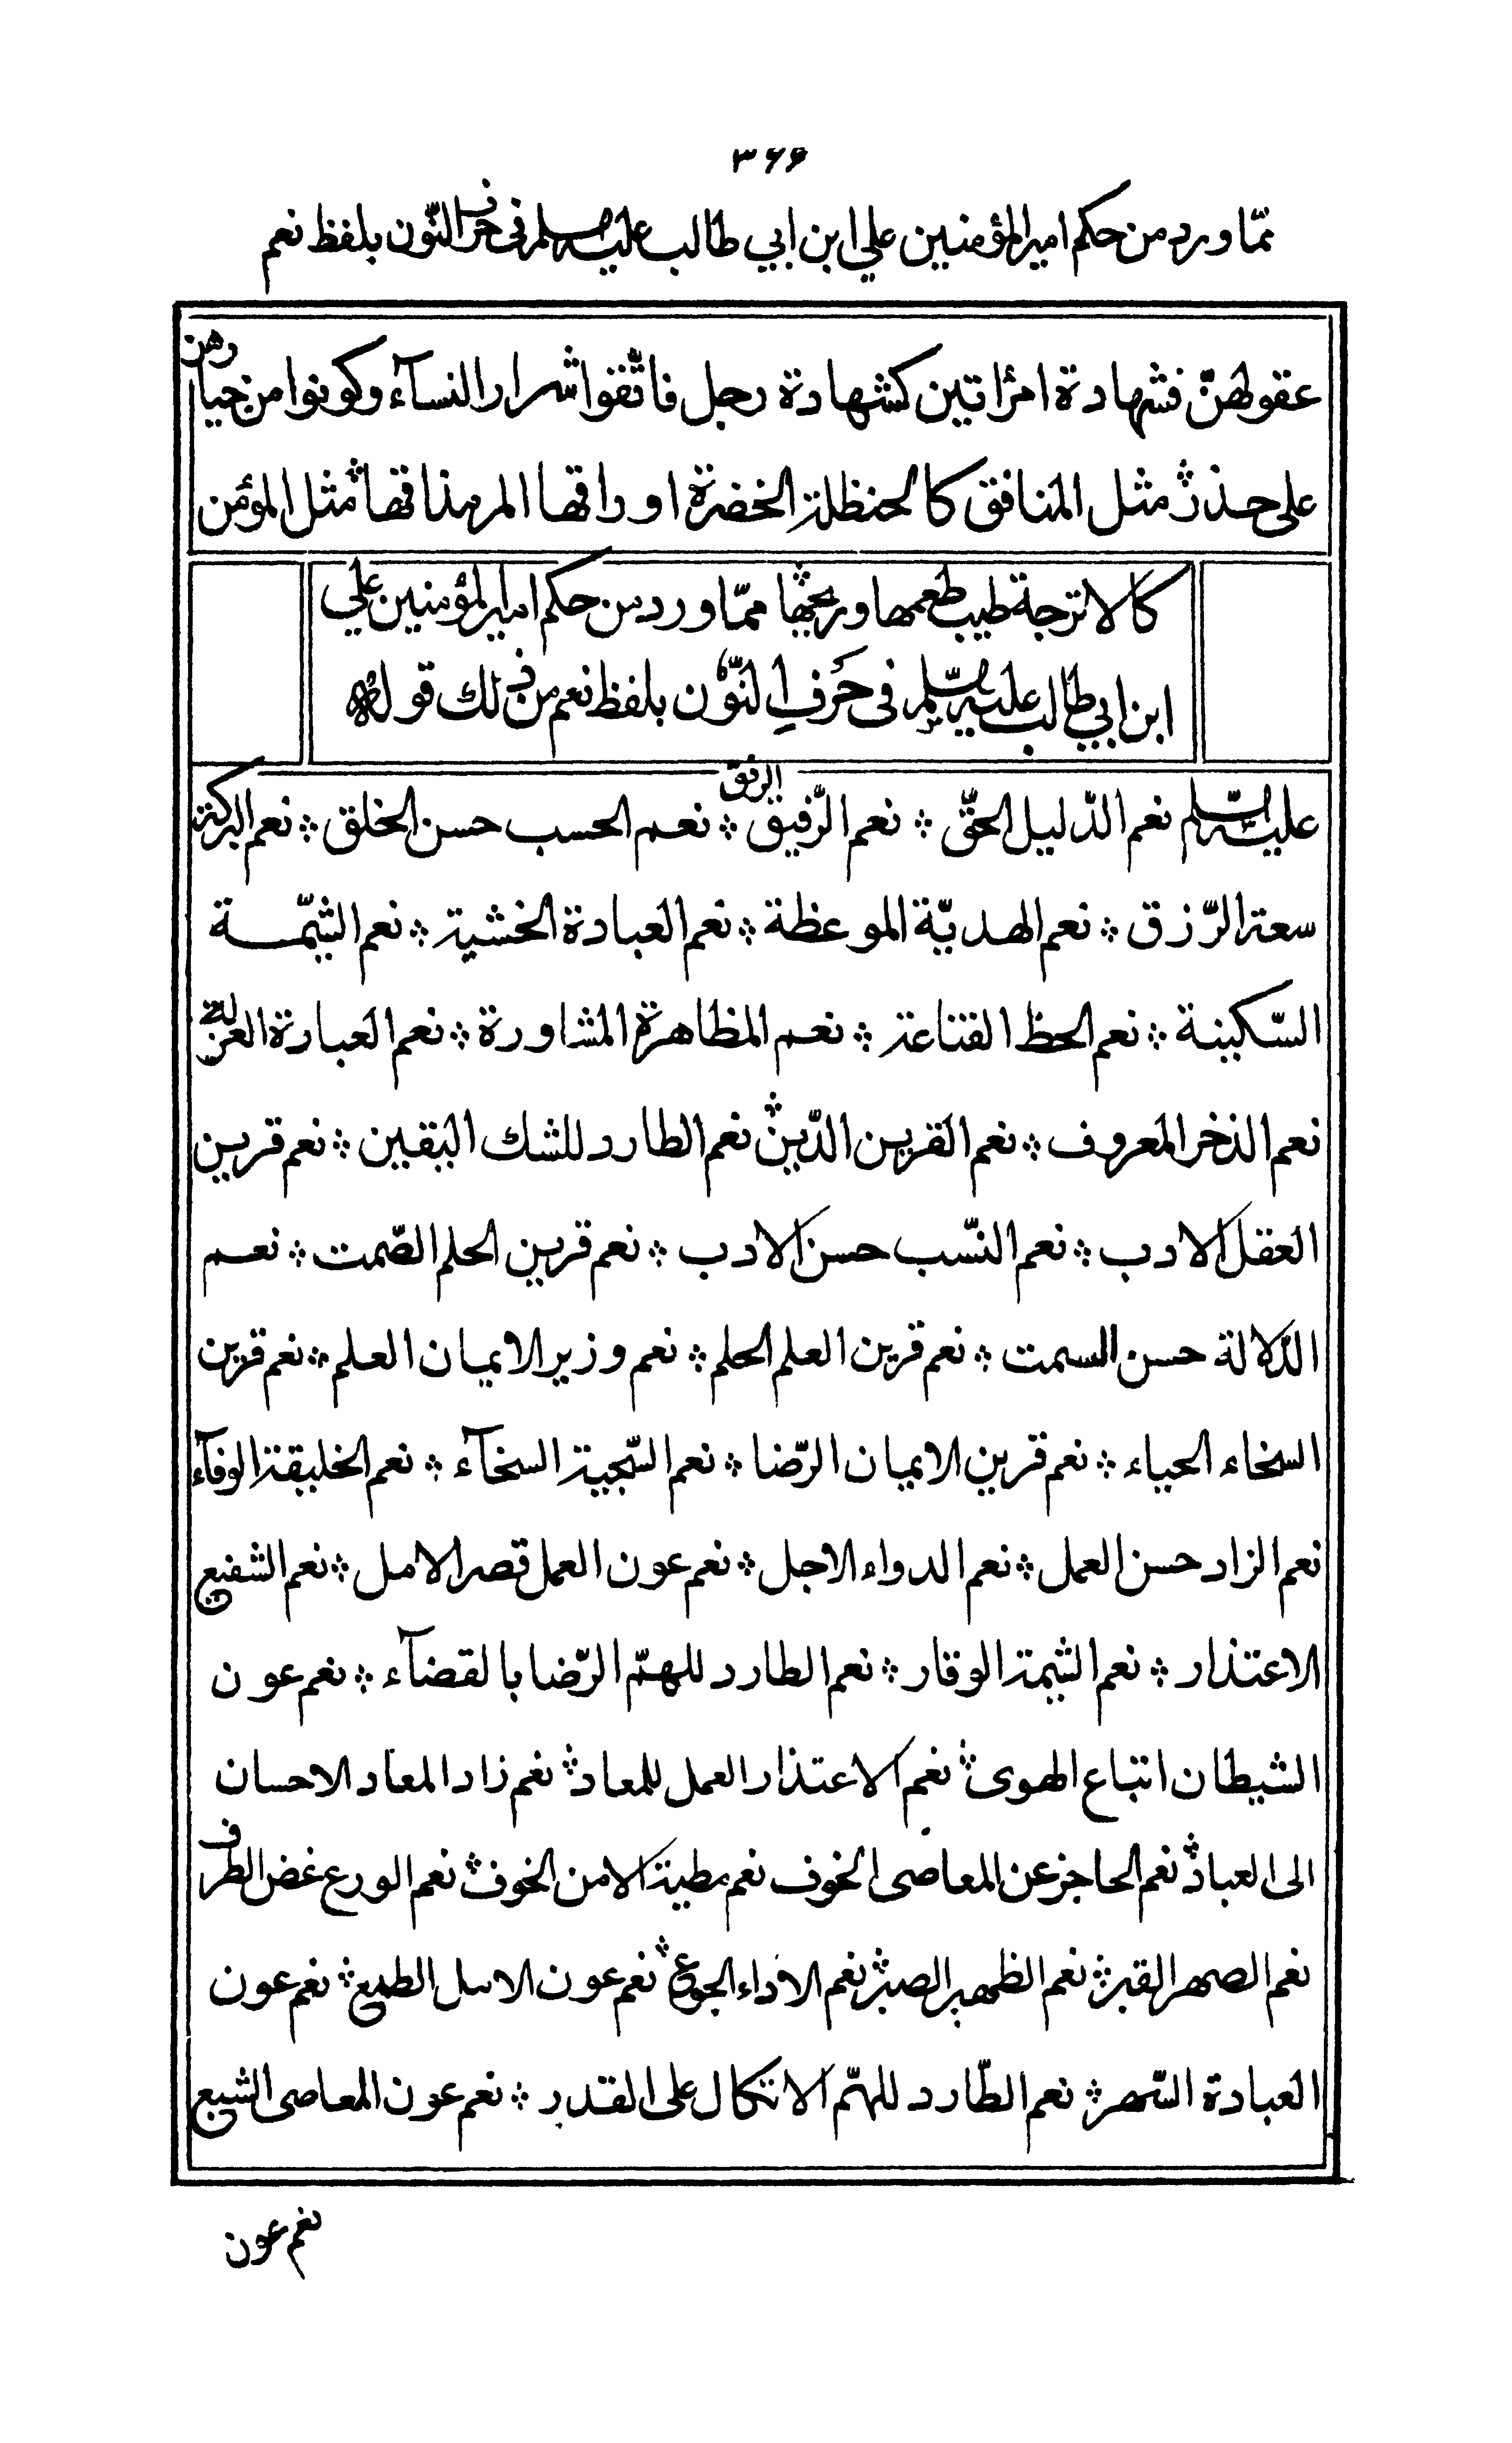 ۳۶۶
ممّا ورد من حكم امير المؤمنين علي ابن ابي طالب عليه السلم فى حرف النّون بلفظ نعم
عقولهنّ فشهادة امرأتين كشهادة رجل فاتّقوا شرار النسآء وكونوا من خيارهن
على حذر ؞ مثل المنافق كالحنظلة الخضرة اوراقها المر مذاقها ؞ مثل المؤمن
كالاترجة طيب طعمها وريحها ؞ ممّا ورد من حكم امير المؤمنين علي
ابن ابي طالب عليه السّلم فى حَرفِ النّون بلفظ نعم من ذلك قوله
عليه السّلم نعم الدّليل الحقّ ؞ نعم الرّفيق الرفق ؞ نعم الحسب حسن الخلق ؞ نعم البركة
سعة الرّزق ؞ نعم الهديّة الموعظة ؞ نعم العبادة الخشية ؞ نعم الشيمة
السّكينة ؞ نعم الحظ القناعة ؞ نعم المظاهرة المشاورة ؞ نعم العبادة العزلة
نعم الذخر المعروف ؞ نعم القرين الدّين ؞ نعم الطارد للشك اليقين ؞ نعم قرين
العقل الادب ؞ نعم النّسب حسن الادب ؞ نعم قرين الحلم الصّمت ؞ نعم
الدّلالة حسن السمت ؞ نعم قرين العلم الحلم ؞ نعم وزير الايمان العلم ؞ نعم قرين
السخاء الحياء ؞ نعم قرين الايمان الرّضا ؞ نعم السّجية السخآء ؞ نعم الخليقة الوفآء
نعم الزاد حسن العمل ؞ نعم الدواء الاجل ؞ نعم عون العمل قصر الامل ؞ نعم الشفيع
الاعتذار ؞ نعم الشيمة الوقار ؞ نعم الطارد للهمّ الرّضا بالقضآء ؞ نعم عون
الشيطان اتباع الهوى ؞ نعم الاعتذار العمل للمعاد ؞ نعم زاد المعاد الاحسان
الى العباد ؞ نعم الحاجز عن المعاصى الخوف نعم مطية الامن الخوف ؞ نعم الورع غض الطرف
نعم الصهر القبر ؞ نعم الظهير الصبر ؞ نعم الاداء الجوع ؞ نعم عون الاسل الطمع ؞ نعم عون
العبادة السّهر ؞ نعم الطّارد للهمّ الاتكال على القدر ؞ نعم عون المعاصى الشبع
نعم عون